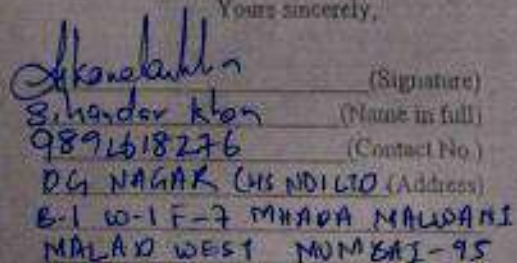 Yours sincerely,
(Signature)
Sihandar khan (Name in full)
9891618276 (Contact No.)
DG NAGAR CHS (Address)
B-1 W-1 F-7 MHADA MALWANI
MALAD WEST MUMBAI-95